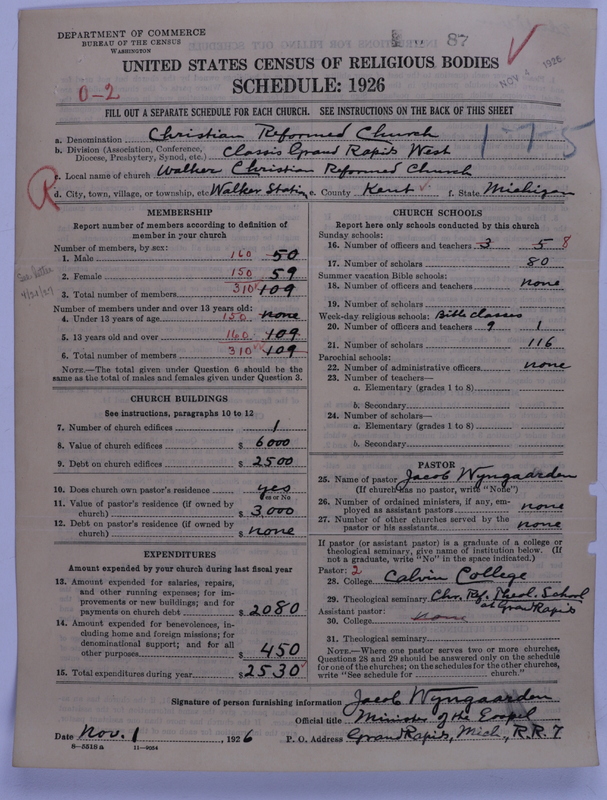 DEPARTMENT OF COMMERCE
BUREAU OF THE CENSUS
WASHINGTON
87
NOV 4 1926
UNITED STATES CENSUS OF RELIGIOUS BODIES
SCHEDULE: 1926
0-2
FILL OUT A SEPARATE SCHEDULE FOR EACH CHURCH. SEE INSTRUCTIONS ON THE BACK OF THIS SHEET
1-7-5
a. Denomination Christian Reformed Church
b. Division (Association, Conference, Diocese, Presbytery, Synod, etc.) Classis Grand Rapids West
c. Local name of church Walker Christian Reformed Church
R
d. City, town, village, or township, etc. Walker Station e. County Kent f. State Michigan
MEMBERSHIP
Report number of members according to definition of
member in your church
Number of members, by sex:
1. Male 160 50
2. Female 150 59
3. Total number of members 310 109
4/21/27
Number of members under and over 13 years old:
4. Under 13 years of age 150 none
5. 13 years old and over 160 109
6. Total number of members 310 109
NOTE.—The total given under Question 6 should be the
same as the total of males and females given under Question 3.
CHURCH BUILDINGS
See instructions, paragraphs 10 to 12
7. Number of church edifices 1
8. Value of church edifices $ 6000
9. Debt on church edifices $ 2500
10. Does church own pastor's residence yes
Yes or No
11. Value of pastor's residence (if owned by
church) $ 3,000
12. Debt on pastor's residence (if owned by
church) $ none
EXPENDITURES
Amount expended by your church during last fiscal year
13. Amount expended for salaries, repairs,
and other running expenses; for im-
provements or new buildings; and for
payments on church debt $ 2080
14. Amount expended for benevolences, in-
cluding home and foreign missions; for
denominational support; and for all
other purposes $ 450
15. Total expenditures during year $ 2530
CHURCH SCHOOLS
Report here only schools conducted by this church
Sunday schools:
16. Number of officers and teachers 3 5 8
17. Number of scholars 80
Summer vacation Bible schools:
18. Number of officers and teachers none
19. Number of scholars
Week-day religious schools: Bible classes
20. Number of officers and teachers 9 1
21. Number of scholars 116
Parochial schools:
22. Number of administrative officers none
23. Number of teachers—
a. Elementary (grades 1 to 8)
b. Secondary
24. Number of scholars—
a. Elementary (grades 1 to 8)
b. Secondary
PASTOR
25. Name of pastor Jacob Wyngaarden
(If church has no pastor, write "None")
26. Number of ordained ministers, if any, em-
ployed as assistant pastors none
27. Number of other churches served by the
pastor or his assistants none
If pastor (or assistant pastor) is a graduate of a college or
theological seminary, give name of institution below. (If
not a graduate, write "No" in the space indicated.)
Pastor: 2
28. College Calvin College
29. Theological seminary Chr. Ref. Theol. School
at Grand Rapids
Assistant pastor:
30. College none
31. Theological seminary
NOTE.—Where one pastor serves two or more churches,
Questions 28 and 29 should be answered only on the schedule
for one of the churches; on the schedules for the other churches,
write "See schedule for church."
Signature of person furnishing information Jacob Wyngaarden
Official title Minister of the Gospel
Date Nov. 1, 1926 P. O. Address Grand Rapids, Mich., R.R. 7
8—5518 a 11—9034